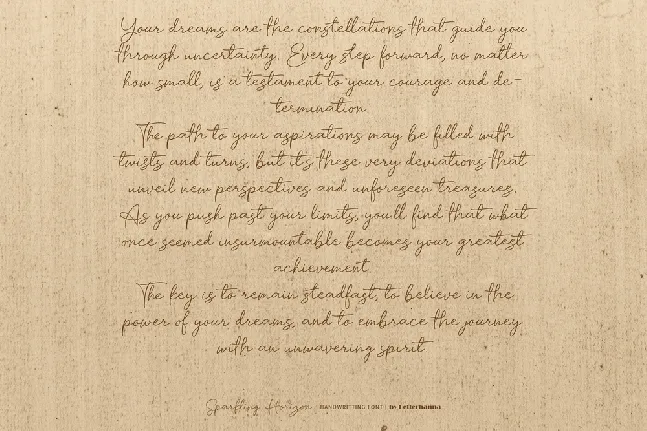 Your dreams are the constellations that guide you
through uncertainty. Every step forward, no matter
how small, is a testament to your courage and de-
termination.
The path to your aspirations may be filled with
twists and turns, but it's these very deviations that
unveil new perspectives and unforeseen treasures.
As you push past your limits, you'll find that what
once seemed insurmountable becomes your greatest
achievement.
The key is to remain steadfast, to believe in the
power of your dreams, and to embrace the journey
with an unwavering spirit.
Sparkling Horizon | HANDWRITTING FONT | by Letterhanna